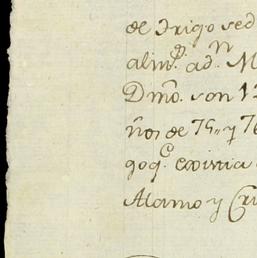 de trigo sed
alim.D. ad.n M
Dmo. son 1
ños de 75,, y 76
goq.e existia
Alamo y Cri